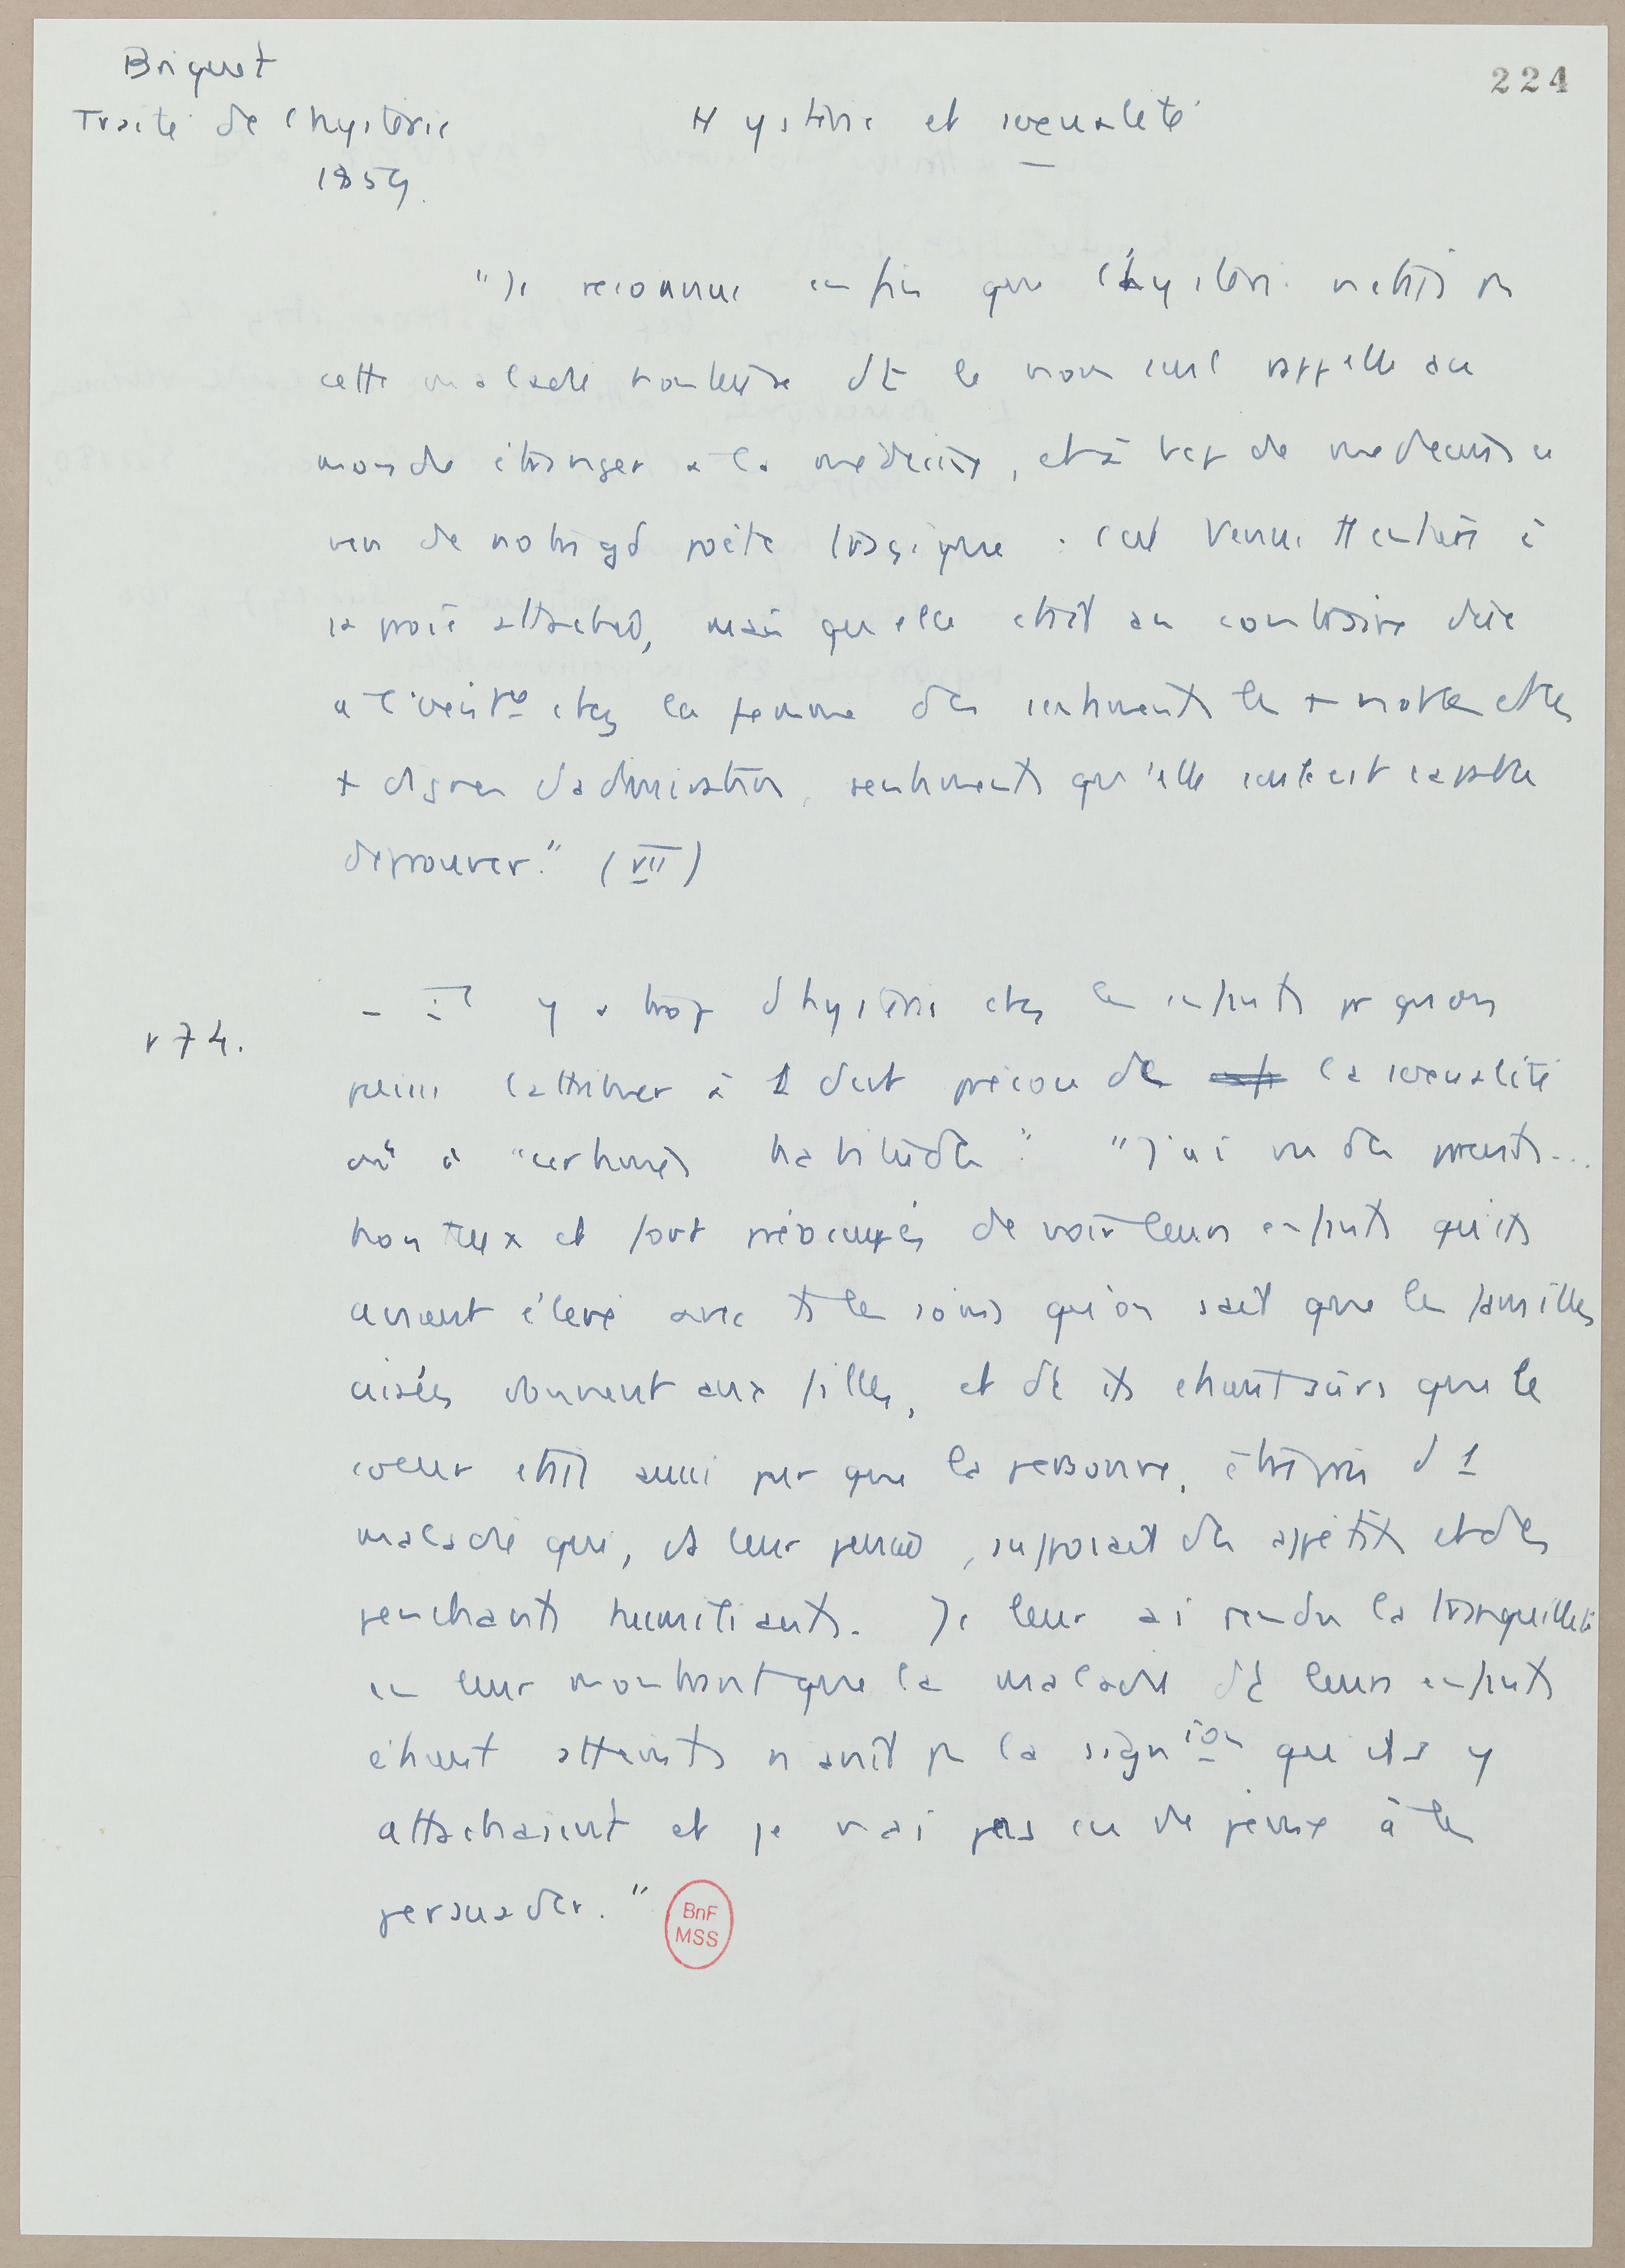 Briquet
224
Traité de l'hystérie
Hystérie et sexualité
1859.
"Je reconnus enfin que l'hystérie n'était pas
cette maladie honteuse dt le nom seul rappelle au
monde étranger à la médecine, et à bcp de médecins ce
vers de notre gd poète tragique : c'est Venus tt entière à
sa proie attachée, mais qu'elle était au contraire due
à l'existce chez la femme des sentiments les + nobles et les
+ dignes d'admiration, sentiments qu'elle seule est capable
d'éprouver." (VII)
- Il y a trop d'hystérie chez les enfants pr qu'on
p 74.
puisse l'attribuer à 1 éveil précoce de la sexualité
ou à "certaines habitudes" "J'ai vu des parents...
honteux et fort préoccupés de voir leurs enfants qu'ils
avaient élevé avec ts les soins qu'on sait que les familles
aisées donnent aux filles, et dt ils étaient sûrs que le
coeur était aussi pur que la personne, être pris d'1
maladie qui, ds leur pensée, supposait des appétits et des
penchants humiliants. Je leur ai rendu la tranquillité
en leur montrant que la maladie dt leurs enfants
étaient atteints n'avait pas la sign ion qu'ils y
attachaient et je n'ai pas eu de peine à les
persuader."
BnF
MSS